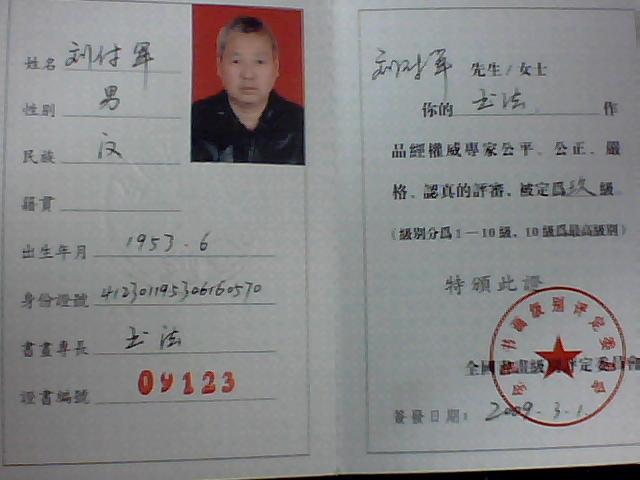 姓名 刘付军
性别 男
民族 汉
籍貫
出生年月 1953.6
身份證號 412301195306160570
書畫專長 书法
證書編號 09123
刘付军 先生/女士
你的 书法 作
品經權威專家公平、公正、嚴
格、認真的評審、被定爲玖級
(級别分爲1—10級、10級爲最高級别)
特頒此證
全國書畫級别評定委員會
簽發日期: 2009.3.1